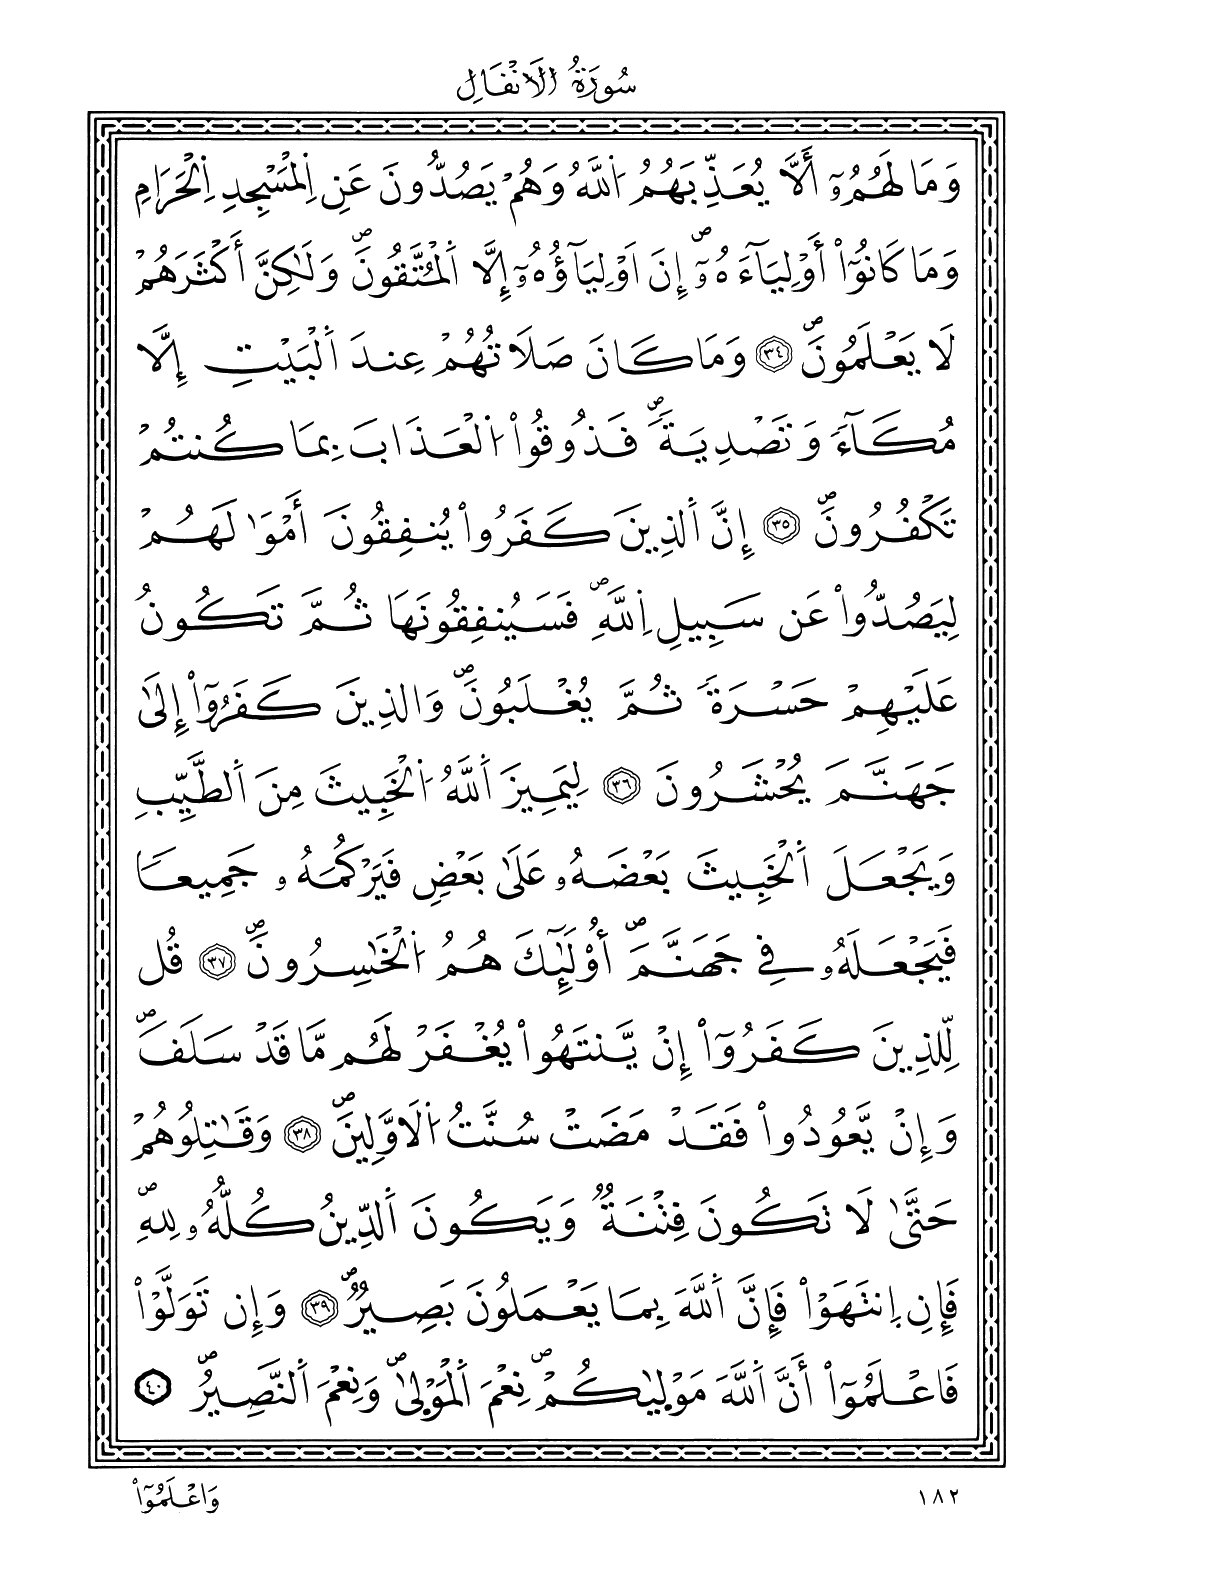 سُورَةُ الَانْفَالِ
وَمَا لَهُمُۥٓ أَلَّا يُعَذِّبَهُمُ اُ۬للَّهُ وَهُمْ يَصُدُّونَ عَنِ اِ۬لْمَسْجِدِ اِ۬لْحَرَامِ
وَمَا كَانُوٓاْ أَوْلِيَآءَهُۥٓۖ إِنَ اَوْلِيَآؤُهُۥٓ إِلَّا اَ۬لْمُتَّقُونَۖ وَلَٰكِنَّ أَكْثَرَهُمْ
لَا يَعْلَمُونَۖ ٣٤ وَمَا كَانَ صَلَاتُهُمْ عِندَ اَ۬لْبَيْتِ إِلَّا
مُكَآءٗ وَتَصْدِيَةٗۖ فَذُوقُواْ اُ۬لْعَذَابَ بِمَا كُنتُمْ
تَكْفُرُونَۖ ٣٥ إِنَّ اَ۬لذِينَ كَفَرُواْ يُنفِقُونَ أَمْوَٰلَهُمْ
لِيَصُدُّواْ عَن سَبِيلِ اِ۬للَّهِۖ فَسَيُنفِقُونَهَا ثُمَّ تَكُونُ
عَلَيْهِمْ حَسْرَةٗ ثُمَّ يُغْلَبُونَۖ وَالذِينَ كَفَرُوٓاْ إِلَىٰ
جَهَنَّمَ يُحْشَرُونَ ٣٦ لِيَمِيزَ اَ۬للَّهُ اُ۬لْخَبِيثَ مِنَ اَ۬لطَّيِّبِ
وَيَجْعَلَ اَ۬لْخَبِيثَ بَعْضَهُۥ عَلَىٰ بَعْضٖ فَيَرْكُمَهُۥ جَمِيعاٗ
فَيَجْعَلَهُۥ فِي جَهَنَّمَۖ أُوْلَٰٓئِكَ هُمُ اُ۬لْخَٰسِرُونَۖ ٣٧ قُل
لِّلذِينَ كَفَرُوٓاْ إِنْ يَّنتَهُواْ يُغْفَرْ لَهُم مَّا قَدْ سَلَفَۖ
وَإِنْ يَّعُودُواْ فَقَدْ مَضَتْ سُنَّتُ اُ۬لَاوَّلِينَۖ ٣٨ وَقَٰتِلُوهُمْ
حَتَّىٰ لَا تَكُونَ فِتْنَةٞ وَيَكُونَ اَ۬لدِّينُ كُلُّهُۥ لِلهِۖ
فَإِنِ اِ۪نتَهَوْاْ فَإِنَّ اَ۬للَّهَ بِمَا يَعْمَلُونَ بَصِيرٞۖ ٣٩ وَإِن تَوَلَّوْاْ
فَاعْلَمُوٓاْ أَنَّ اَ۬للَّهَ مَوْل۪يٰكُمْۖ نِعْمَ اَ۬لْمَوْل۪يٰۖ وَنِعْمَ اَ۬لنَّصِيرُۖ ٤٠
١٨٢
وَاعْلَمُوٓاْ